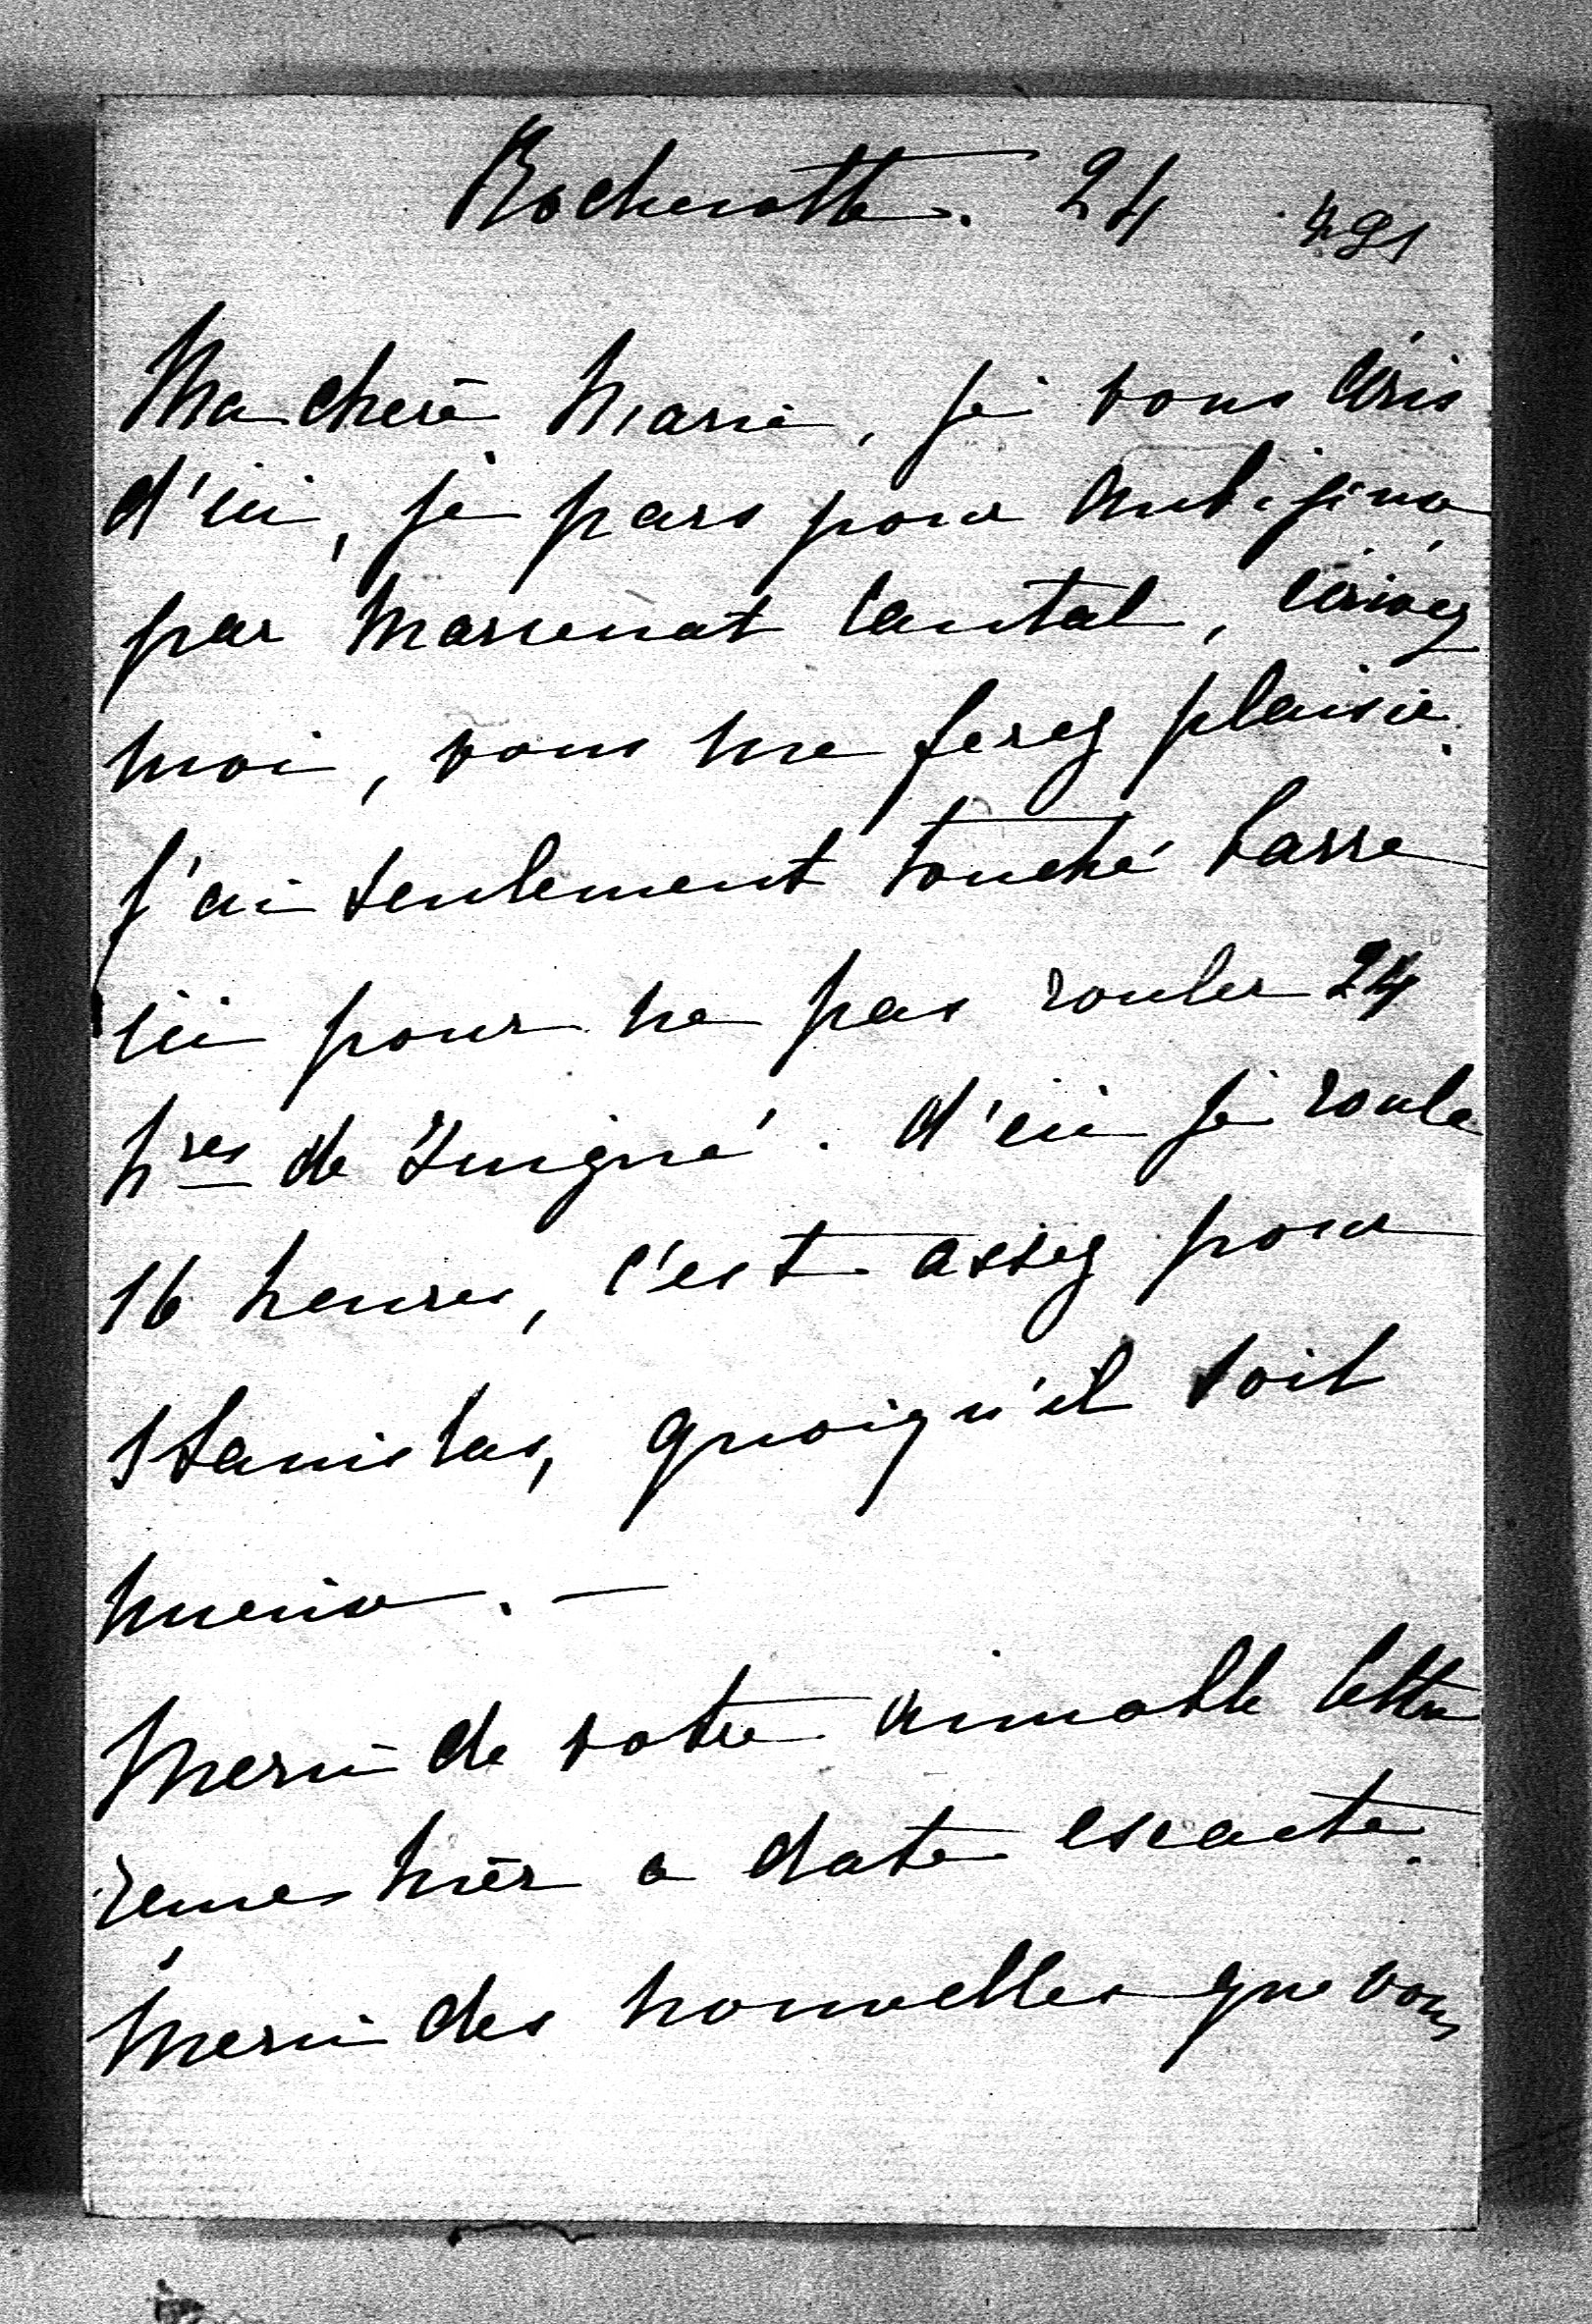 Rochecotte. 24
Ma chère Marie, je vous écris
d'ici, je pars pour Aubijoux
par Marcenat Cantal, écrivez
moi, vous me ferez plaisir.
J'ai seulement touché barre
ici pour ne pas rouler 24
hres de Juigné. d'ici je roule
16 heures, c'est assez pour
Stanislas, quoiqu'il soit
mieux. —
Merci de votre aimable lettre
remes hier a date exacte.
Merci des nouvelles que vous